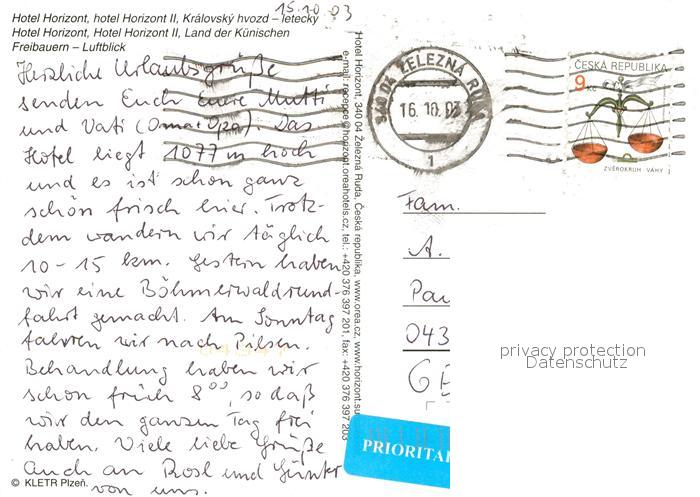 15.10.03
Hotel Horizont, hotel Horizont II, Královský hvozd – letecky
Hotel Horizont, Hotel Horizont II, Land der Künischen
Freibauern – Luftblick
Herzliche Urlaubsgrüße
senden Euch Eure Mutti
und Vati (Oma + Opa). Das
Hotel liegt 1077 m hoch
und es ist schon ganz
schön frisch hier. Trotz-
dem wandern wir täglich
10-15 km. Gestern haben
wir eine Böhmerwaldrund-
fahrt gemacht. Am Sonntag
fahren wir nach Pilsen.
Behandlung haben wir
schon früh 8⁰⁰, so daß
wir den ganzen Tag frei
haben. Viele liebe Grüße
auch an Rosl und Günter
von uns.
© KLETR Plzeň.
Hotel Horizont, 340 04 Železná Ruda, Česká republika, www.orea.cz, www.horizont.su
e-mail: recepce@horizont.oreahotels.cz, tel.: +420 376 397 201, fax: +420 376 397 203
340 04 ŽELEZNÁ RUDA
16.10.03
1
ČESKÁ REPUBLIKA
9 Kč
ZVĚROKRUH VÁHY
Fam.
A.
Pau
043
PRIORITAI
privacy protection
Datenschutz